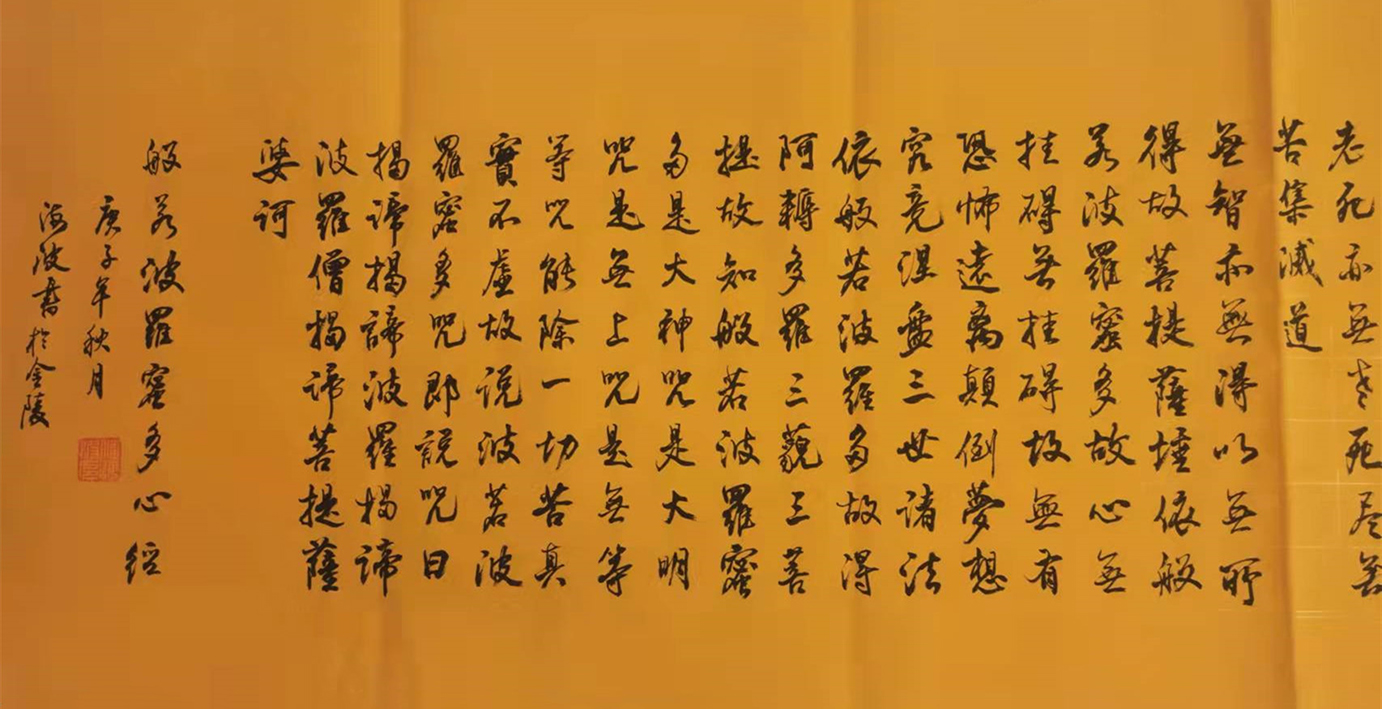 老死亦無老死尽無
苦集滅道
無智亦無得以無所
得故菩提薩埵依般
若波羅蜜多故心無
挂碍無挂碍故無有
恐怖遠離顛倒夢想
究竟涅盤三世諸法
依般若波羅多故得
阿耨多羅三藐三菩
提故知般若波羅蜜
多是大神咒是大明
咒是無上咒是無等
等咒能除一切苦真
實不虛故说波若波
羅蜜多咒即説咒曰
揭諦揭諦波羅揭諦
波羅僧揭諦菩提薩
婆訶
般若波羅蜜多心經
庚子年秋月
海波書於金陵